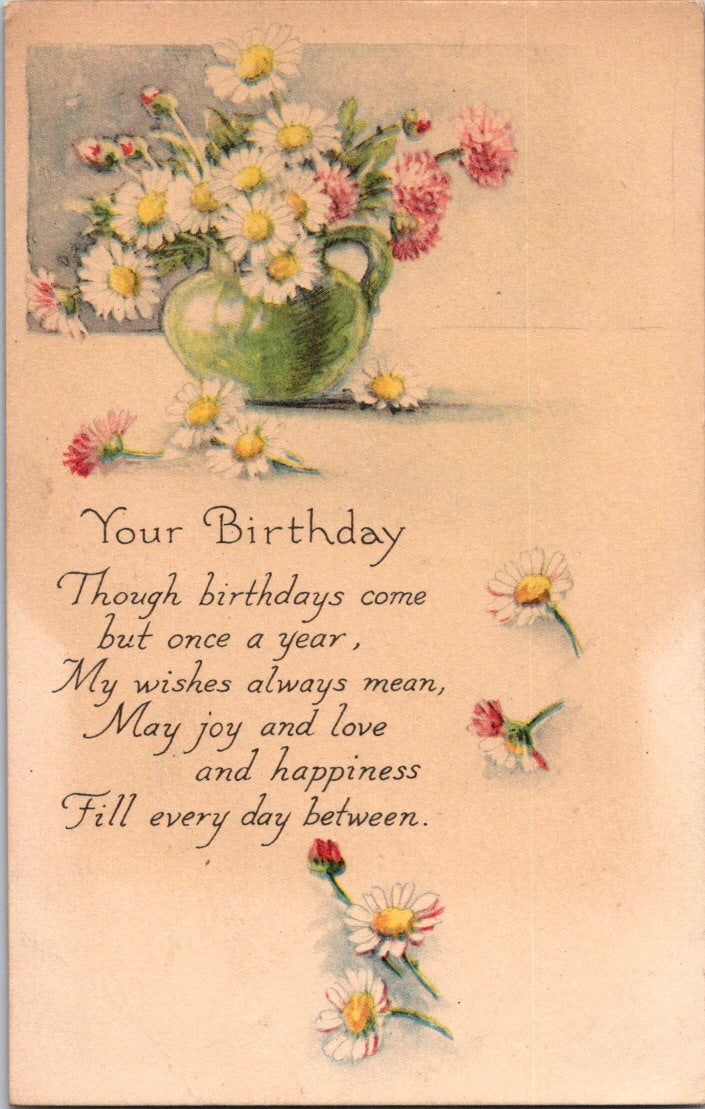 Your Birthday
Though birthdays come
but once a year,
My wishes always mean,
May joy and love
and happiness
Fill every day between.